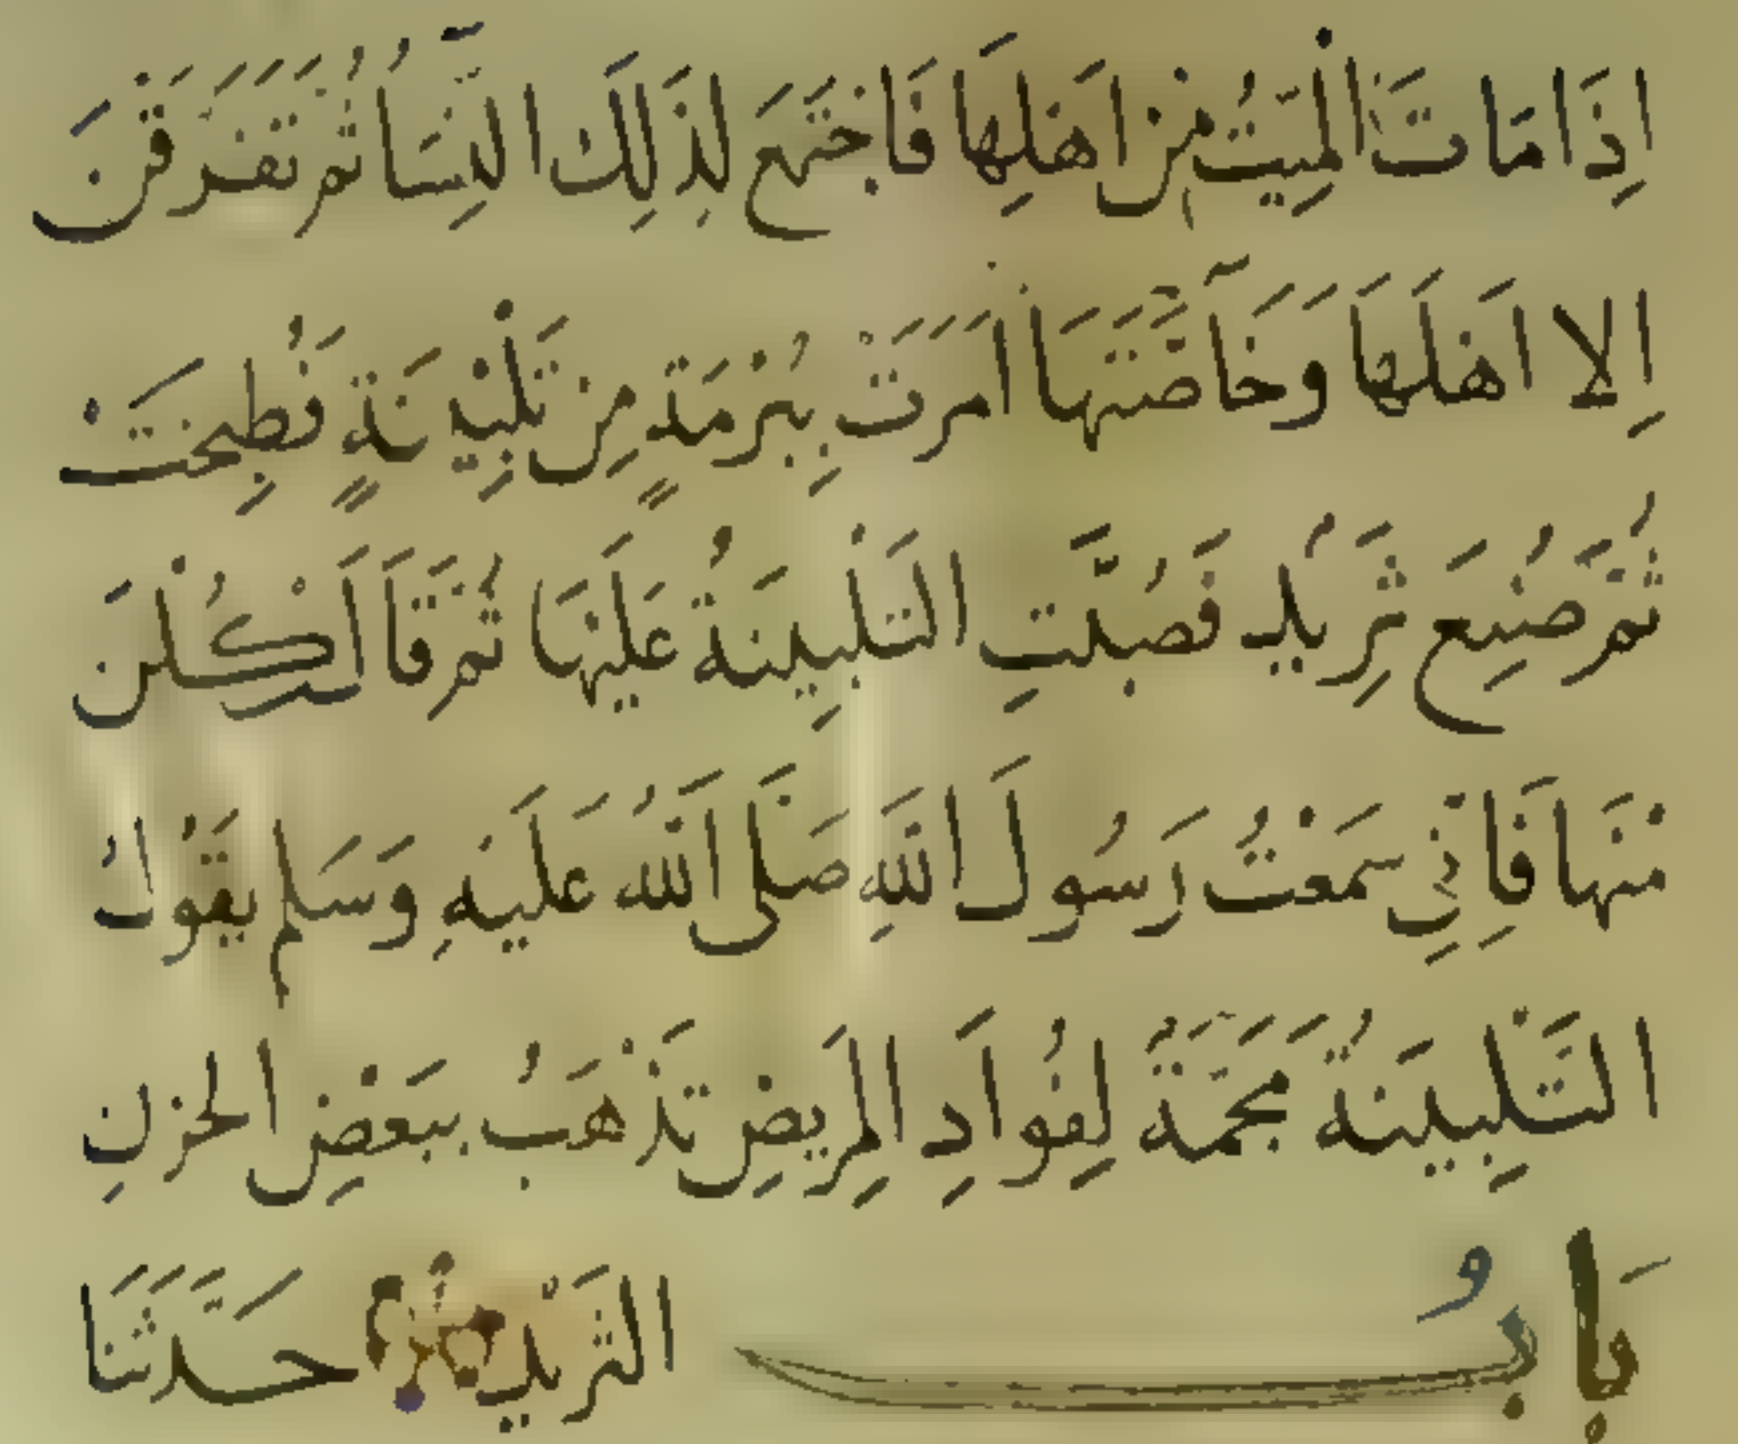 اِذَا مَاتَ الْمَيِّتُ مِنْ اَهْلِهَا فَاجْتَمَعَ لِذَلِكَ النِّسَاُ ثُمَّ تَفَرَّقْنَ
اِلا اَهْلَهَا وَخَاصَّتَهَا اَمَرَتْ بِبُرْمَةٍ مِنْ تَلْبِيْنَةٍ فَطُبِخَتْ
ثُمَّ صُنِعَ ثَرِيْدٌ فَصُبَّتِ التَّلْبِينَةُ عَلَيْهَا ثُمَّ قَالَتْ كُلْنَ
مِنْهَا فَاِنِّي سَمِعْتُ رَسُولَ اللهِ صَلَّى اللهُ عَلَيْهِ وَسَلم يَقُولُ
التَّلْبِينَةُ مَجَمَّةٌ لِفُؤَادِ الْمَرِيضِ تَذْهَبُ بِبَعْضِ الحُزْنِ
بَابُ الثَّرِيْدِ حَدَّثَنَا